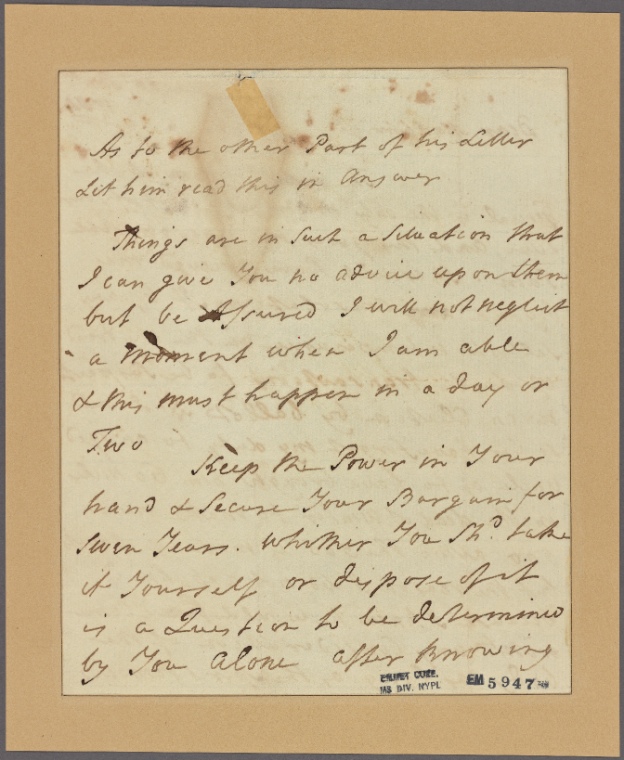 As to the other Part of his Letter
Let him read this in Answer
Things are in Such a Situation that
I can give You no advice upon them
but be Assured I will not neglect
a moment when I am able
& this must happen in a day or
Two
Keep the Power in Your
hand & Secure Your Bargain for
Seven Years. Whether You Shd. take
it Yourself or dispose of it
is a Question to be determined
by You alone after knowing
EMMET COLL.
MS DIV. NYPL
EM 5947